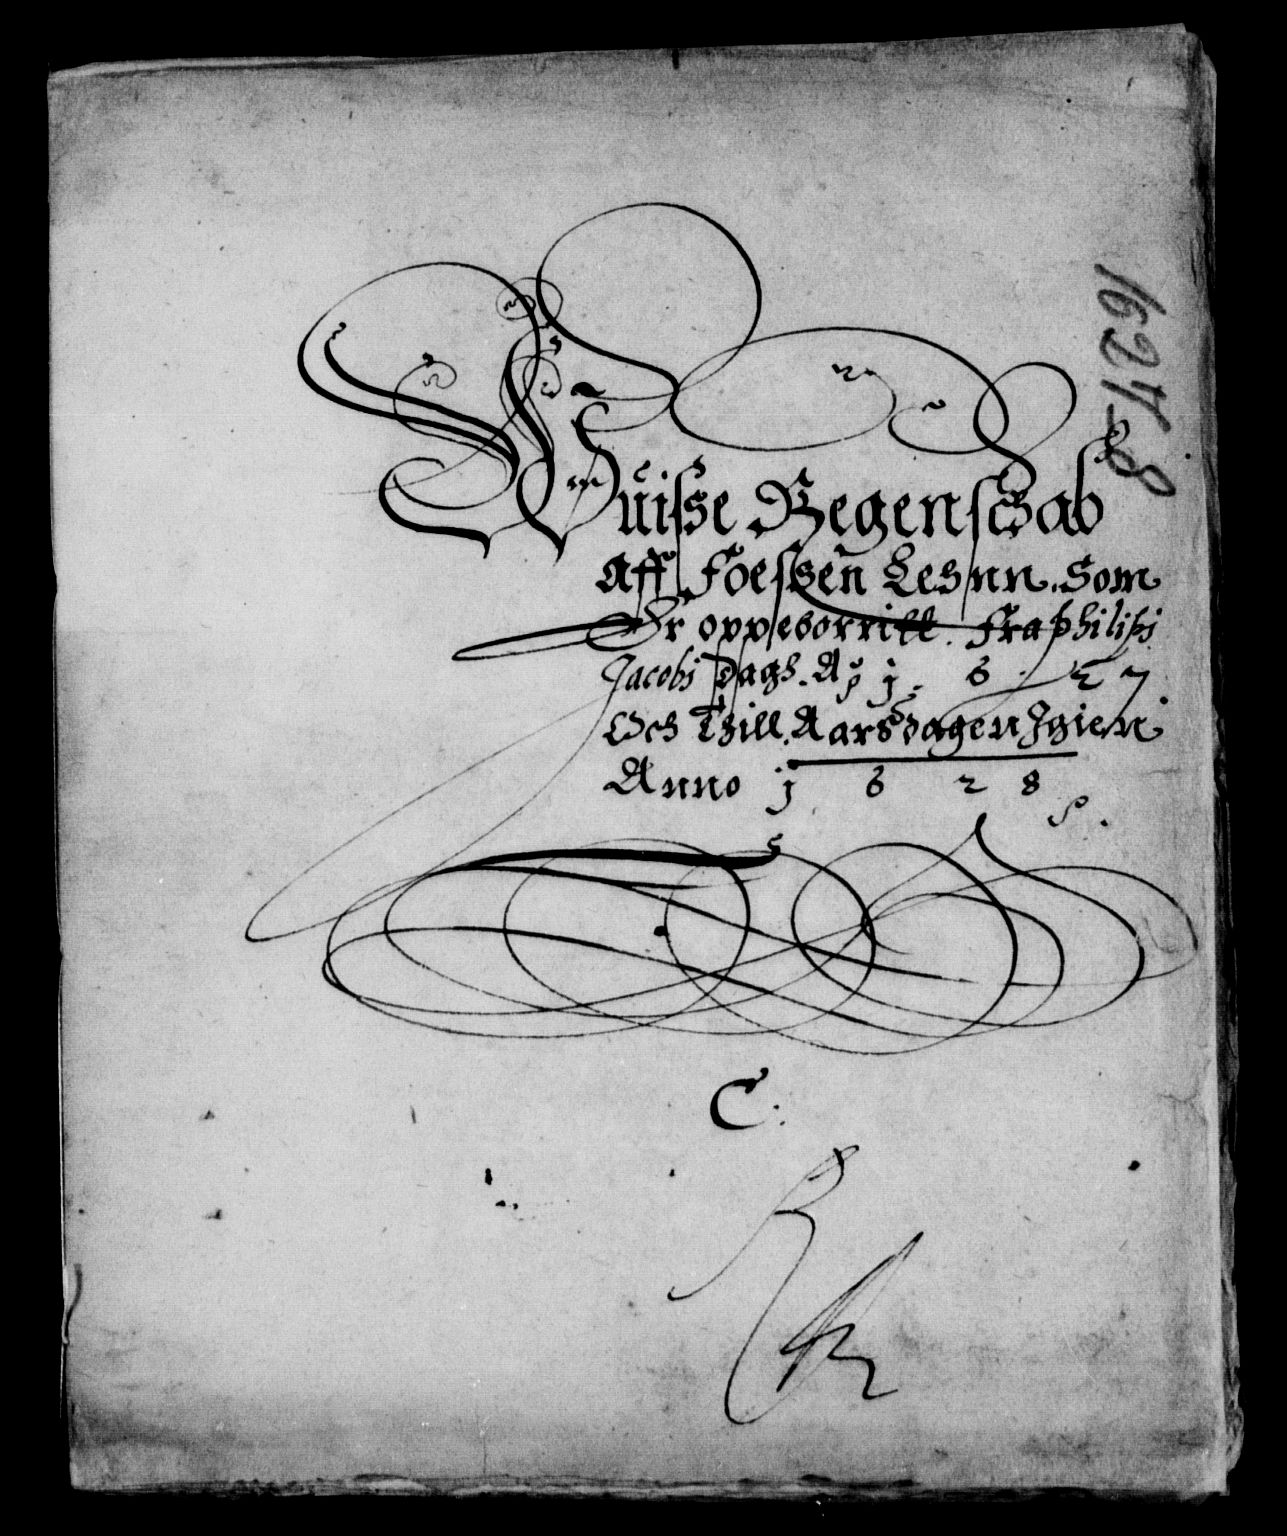 Wüisse Regenschab
Aff Foessen Lehnn. Som
Er oppeborritt. Fra philipi
Jacobi Dagh. Ao 1. 6. 27
Och Thill Aarsdagen Igien
Anno 1 6 2 8
C.
1627-8